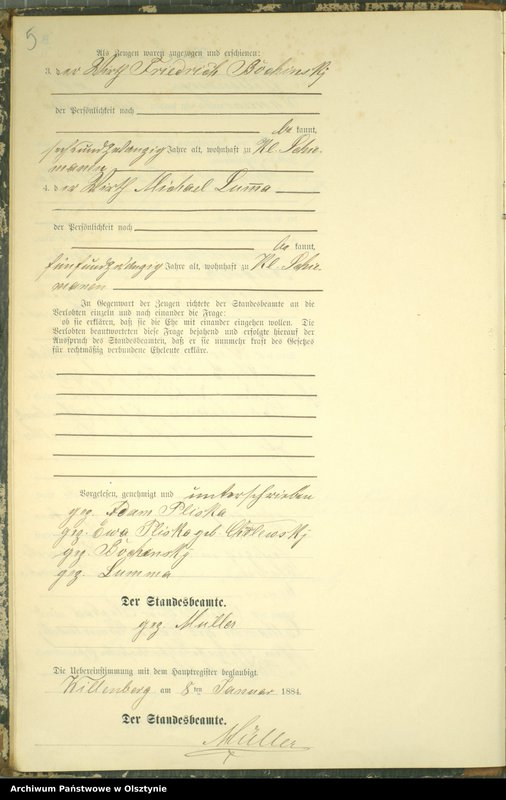 5
Als Zeugen waren zugezogen und erschienen:
3. der Wirth Friedrich Bochinsky
der Persönlichkeit nach
be kannt,
Jahre alt, wohnhaft zu Kl.
4. der Wirth Michael Lumma
der Persönlichkeit nach
be kannt,
fünfundzwanzig Jahre alt, wohnhaft zu Kl.
In Gegenwart der Zeugen richtete der Standesbeamte an die
Verlobten einzeln und nach einander die Frage:
ob sie erklären, daß sie die Ehe mit einander eingehen wollen. Die
Verlobten beantworteten diese Frage bejahend und erfolgte hierauf der
Ausspruch des Standesbeamten, daß er sie nunmehr kraft des Gesetzes
für rechtmäßig verbundene Eheleute erkläre.
Vorgelesen, genehmigt und unterschrieben
gez. Adam Pliska
gez. Ewa Pliska geb.
gez. Bochinsky
gez. Lumma
Der Standesbeamte.
gez. Müller
Die Uebereinstimmung mit dem Hauptregister beglaubigt.
Willenberg am 8 ten Januar 1884.
Der Standesbeamte.
Müller
Archiwum Państwowe w Olsztynie